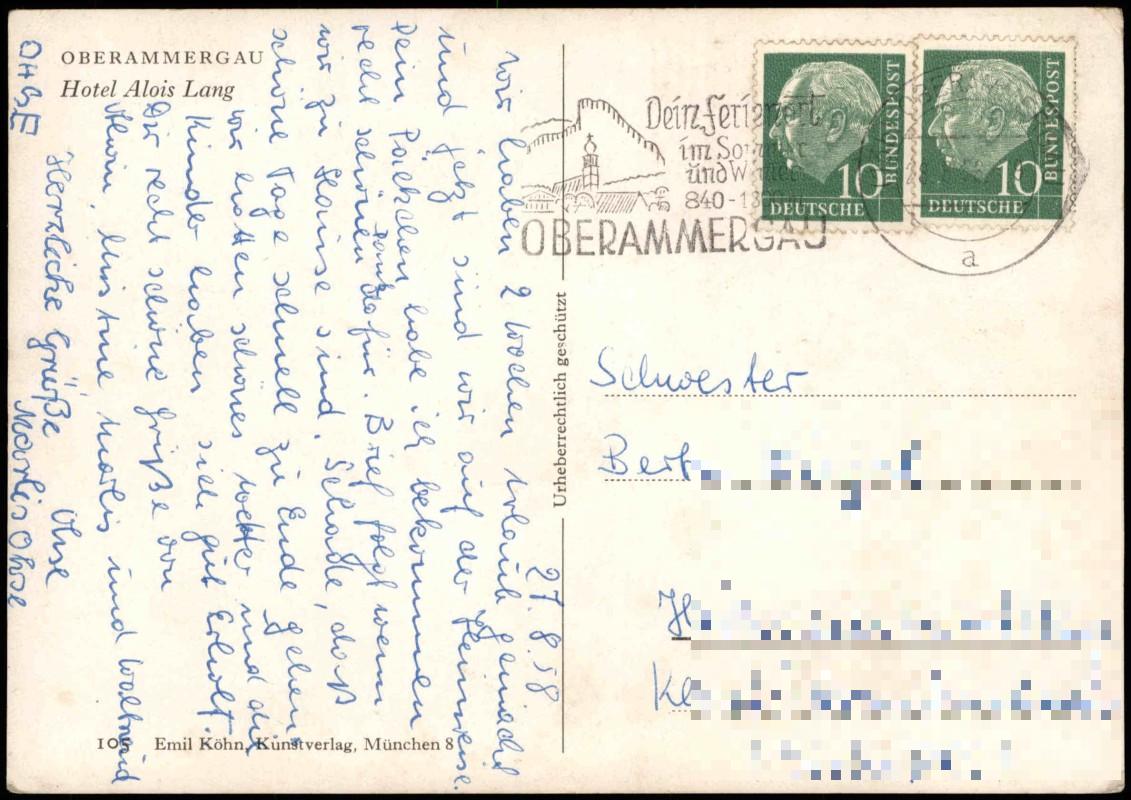 OBERAMMERGAU
Hotel Alois Lang
27.8.58
Wir haben 2 Wochen Urlaub gemacht
und jetzt sind wir auf der Heimreise.
Dein Päckchen habe ich bekommen
recht schönen Dank dafür. Brief folgt wenn
wir zu Hause sind. Schade, daß
schöne Tage schnell zu Ende gehen,
wir hatten schönes Wetter und die
Kinder haben sich gut Erholt.
Dir recht schöne Grüße von
Alwin, Christine, Marlis und Waltraud
Herzliche Grüße
Marlis Ohse
OHSE
105 Emil Köhn, Kunstverlag, München 8
Urheberrechtlich geschützt
Dein Ferienort
im Sommer
und Winter
840-1
OBERAMMERGAU
a
10
DEUTSCHE
BUNDESPOST
10
DEUTSCHE
BUNDESPOST
Schwester
Bert